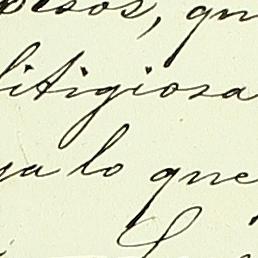 pesos, qu
litigiosa
ya lo que